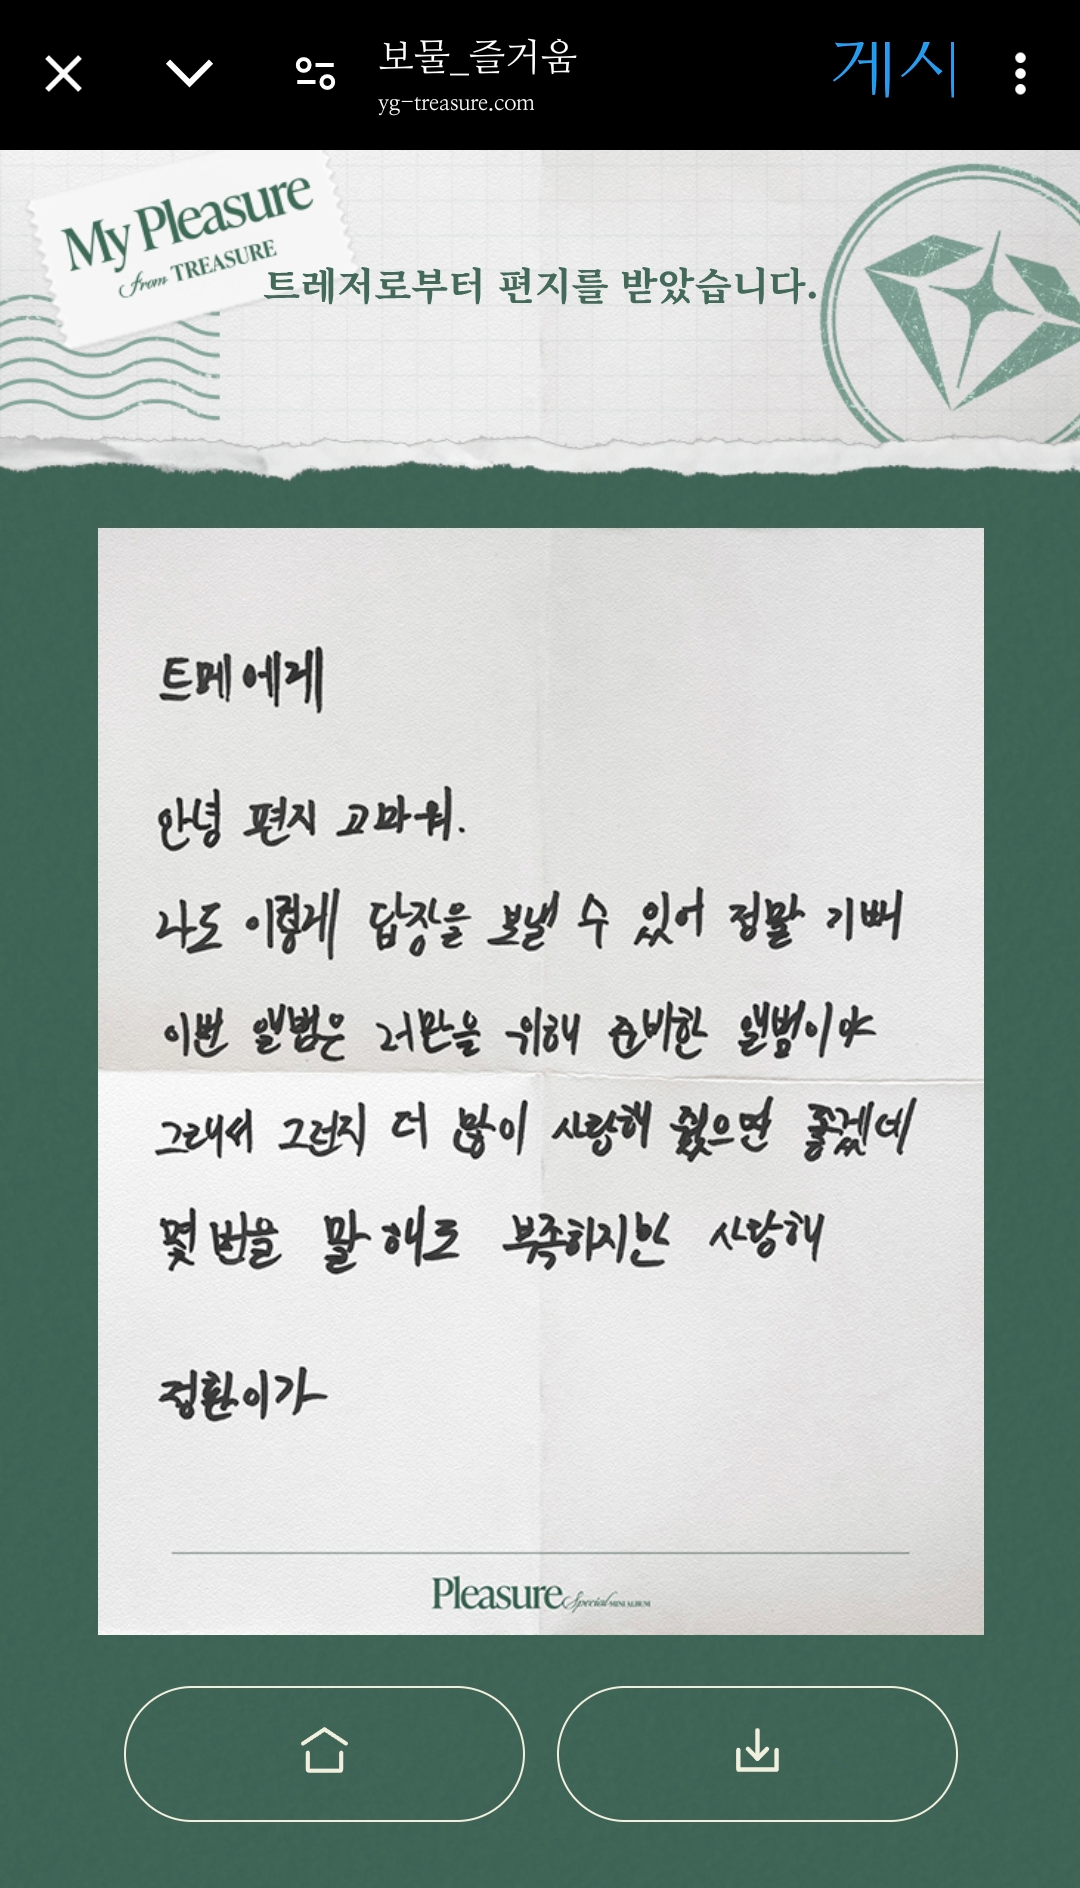 보물_즐거움
게시
yg-treasure.com
My Pleasure
from TREASURE
트레저로부터 편지를 받았습니다.
트메에게
안녕 편지 고마워.
나도 이렇게 답장을 보낼 수 있어 정말 기뻐
이번 앨범은 너만을 위해 준비한 앨범이야
그래서 그런지 더 많이 사랑해 줬으면 좋겠네
몇 번을 말해도 부족하지만 사랑해
정환이가
Pleasure Special MINI ALBUM